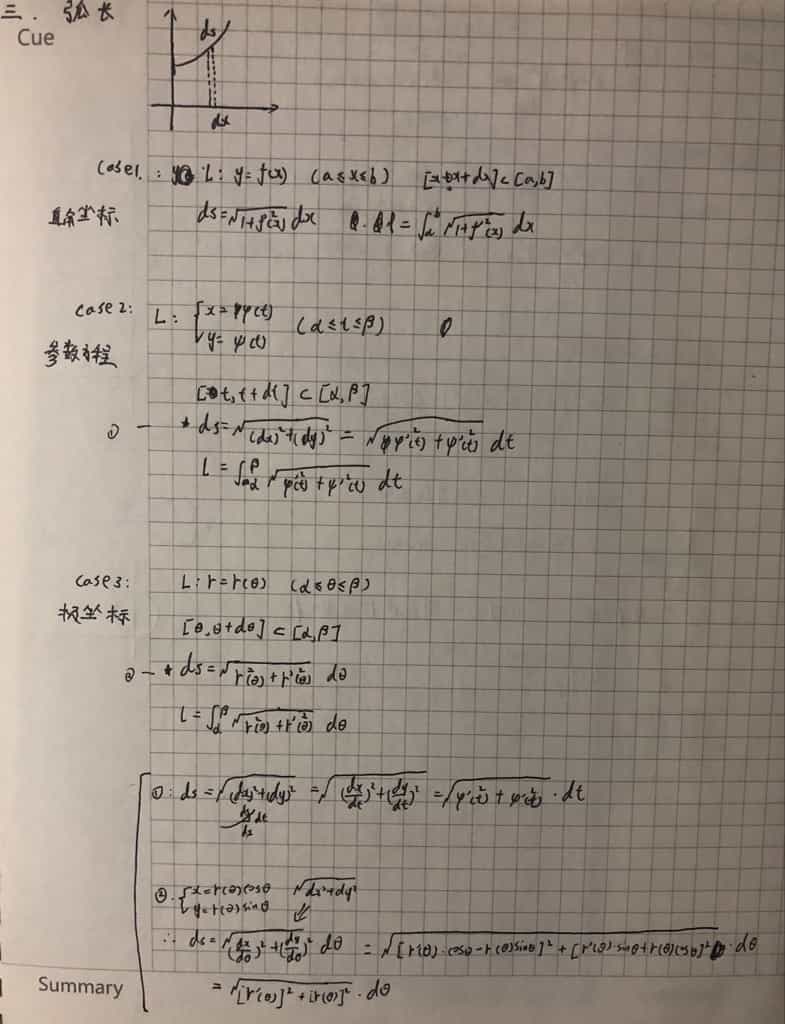 三. 弧长
Cue
ds
dx
case1. : L: y=f(x) (a≤x≤b) [x,x+dx]⊂[a,b]
直角坐标
ds=√(1+f'²(x)) dx l=∫ₐᵇ √(1+f'²(x)) dx
case2: L: {x=φ(t) (α≤t≤β)
{y=ψ(t)
参数方程
[t,t+dt]⊂[α,β]
①— * ds=√((dx)²+(dy)²) = √(φ'²(t)+ψ'²(t)) dt
L=∫_α^β √(φ'²(t)+ψ'²(t)) dt
case3: L:r=r(θ) (α≤θ≤β)
极坐标
[θ,θ+dθ]⊂[α,β]
②— * ds=√(r²(θ)+r'²(θ)) dθ
l=∫_α^β √(r²(θ)+r'²(θ)) dθ
①: ds=√((dx)²+(dy)²) =√((dx/dt)²+(dy/dt)²) =√(φ'²(t)+ψ'²(t))·dt
②. {x=r(θ)cosθ √(dx²+dy²)
{y=r(θ)sinθ
∴ ds=√((dx/dθ)²+(dy/dθ)²) dθ =√([r'(θ)·cosθ-r(θ)sinθ]²+[r'(θ)·sinθ+r(θ)cosθ]²)·dθ
=√([r'(θ)]²+[r(θ)]²)·dθ
Summary